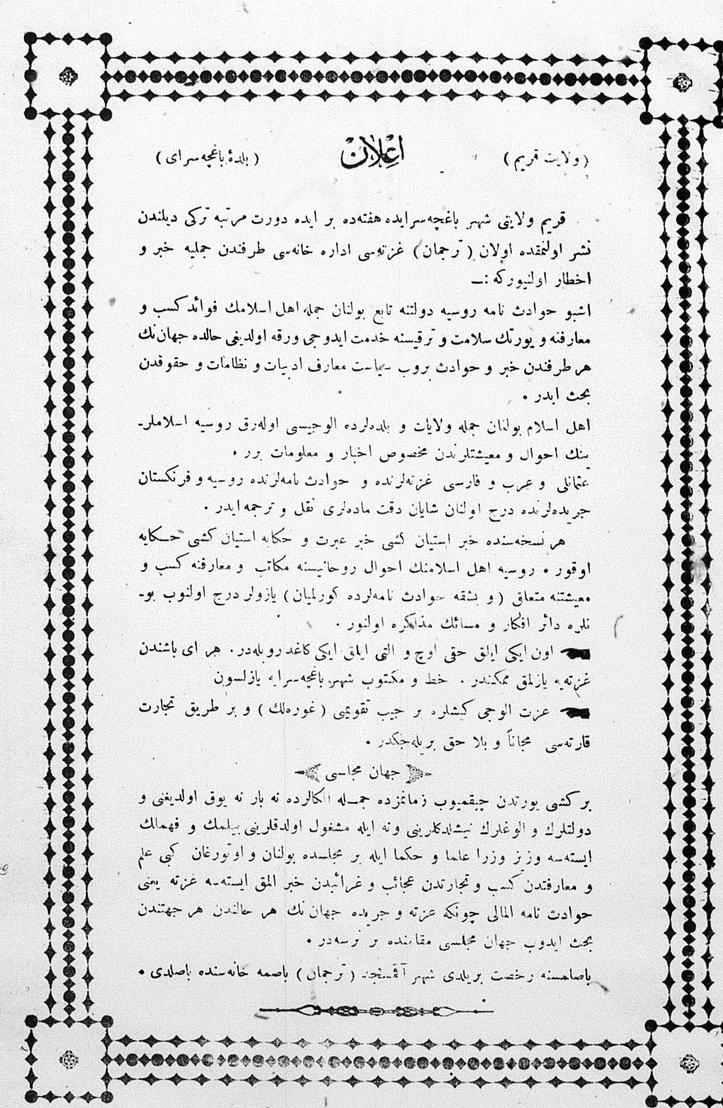 ( ولايت قريم ) اعلان ( بلدهٔ باغچه سراى )
قريم ولايتى شهر باغچه سرايده هفته‌ده بر ايده دورت مرتبه تركى ديلندن
نشر اولنمقده اولان ( ترجمان ) غزته‌سى اداره خانه‌سى طرفندن جمليه خبر و
اخطار اولنيوركه :ـ
اشبو حوادث نامه روسيه دولتنه تابع بولنان جمله اهل اسلامك فوائد كسب و
معارفنه و يورتك سلامت و ترقيسنه خدمت ايدوجى ورقه اولديغى حالده جهان نك
هر طرفندن خبر و حوادث بروب سياست معارف ادبيات و نظامات و حقوقدن
بحث ايدر •
اهل اسلام بولنان جمله ولايات و بلده‌لرده الوجيسى اوله‌رق روسيه اسلاملر‌ـ
ينك احوال و معيشتلرندن مخصوص اخبار و معلومات برر •
عثمانلى و عرب و فارسى غزته‌لرنده و حوادث نامه‌لرنده روسيه و فرنكستان
جريده‌لرنده درج اولنان شايان دقت ماده‌لرى نقل و ترجمه ايدر •
هر نسخه‌سنده خبر استيان كشى خبر عبرت و حكايه استيان كشى حكايه
اوقور • روسيه اهل اسلامنك احوال روحانيسنه مكاتب و معارفنه كسب و
معيشتنه متعلق ( و بشقه حوادث نامه‌لرده كورلميان ) يازولر درج اولنوب بو‌ـ
نلره دائر افكار و مسائك مذاكره اولنور •
اون ايكى ايلق حقى اوچ و التى ايلق ايكى كاغد روبله‌در. هر اى باشندن
غزته‌يه يازلمق ممكندر . خط و مكتوب شهر باغچه‌سرايه يازلسون
عزت الوجى كيشلره بر جيب تقويمى ( غوره‌لك ) و بر طريق تجارت
قارته‌سى مجاناً و بلا حق بريله‌جكدر •
جهان مجلسى
بر كشى يورتدن چيقميوب زمانمزده جمله الكالرده نه بار نه يوق اولديغنى و
دولتلرك و الوغلرك نيشلدكلرينى و نه ايله مشغول اولدقلرينى بيلمك و فهمالك
ايسته‌سه وزز وزرا علما و حكما ايله بر مجلسده بولنان و اوتورغان كبى علم
و معارفتدن كسب و تجارتدن عجائب و غرائبدن خبر المق ايسته‌سه غزته يعنى
حوادث نامه المالى چونكه غزته و جريده جهان نك هر حالندن هر جهتندن
بحث ايدوب جهان مجلسى مقامنده بر نرسه‌در •
باصلمسنه رخصت بريلدى شهر ( ترجمان ) باصمه خانه‌سنده باصلدى •